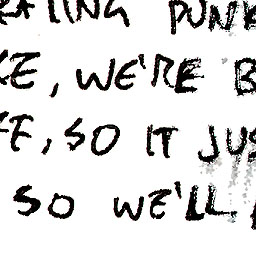 RATING PUNK
KE, WE'RE B
FE, SO IT JUS
SO WE'LL